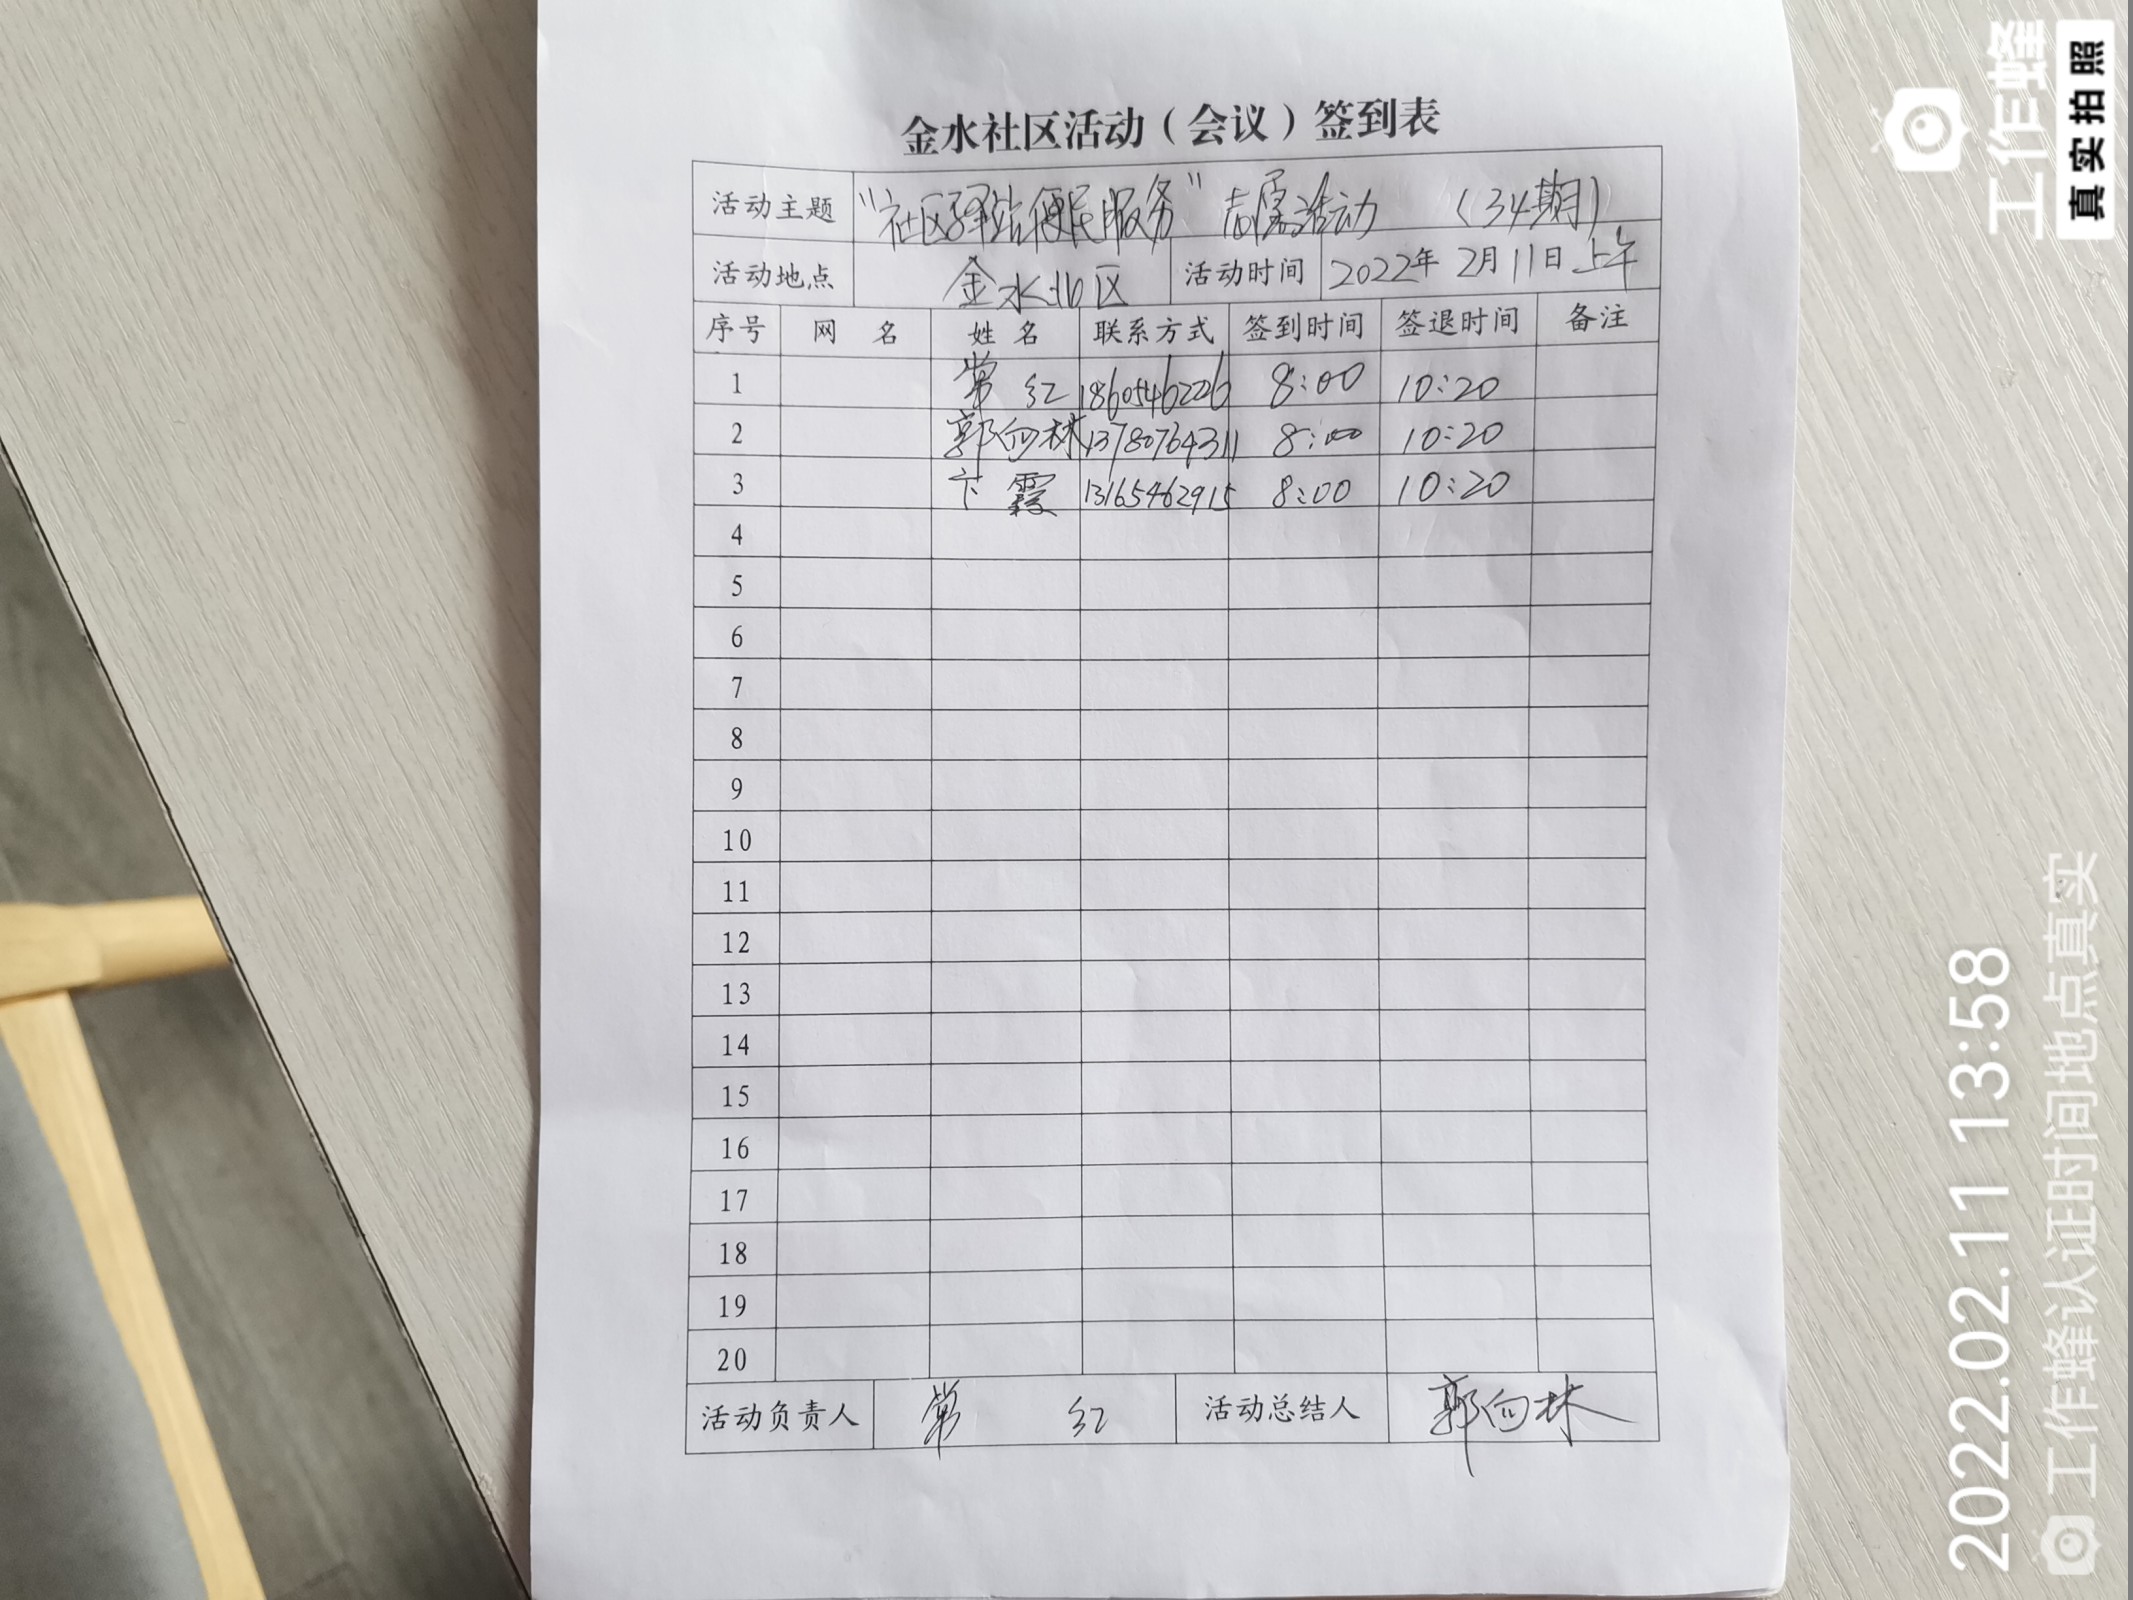 金水社区活动（会议）签到表
活动主题 "社区驿站便民服务"志愿活动 （34期）
活动地点 金水北区 活动时间 2022年2月11日上午
序号 网 名 姓 名 联系方式 签到时间 签退时间 备注
1 常 红 18605462226 8:00 10:20
2 郭向林 13780764311 8:00 10:20
3 卞 霞 13165462915 8:00 10:20
4
5
6
7
8
9
10
11
12
13
14
15
16
17
18
19
20
活动负责人 常 红 活动总结人 郭向林
工作蜂
真实拍照
2022.02.11 13:58
工作蜂认证时间地点真实